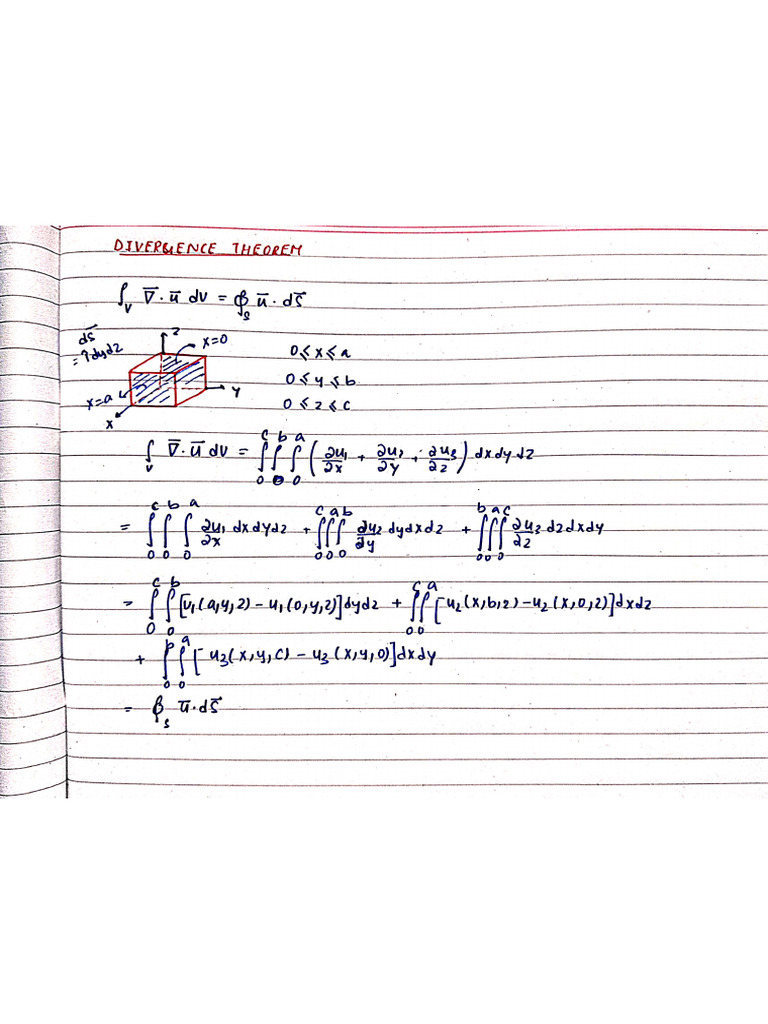 DIVERGENCE THEOREM
∫_V ∇̄ · ū dV = ∮_S ū · ds̄
ds̄ = î dydz
z
x=0
y
x=a
x
0 ⩽ x ⩽ a
0 ⩽ y ⩽ b
0 ⩽ z ⩽ c
∫_V ∇̄ · ū dV = ∫_0^c ∫_0^b ∫_0^a (∂u₁/∂x + ∂u₂/∂y + ∂u₃/∂z) dxdydz
= ∫_0^c ∫_0^b ∫_0^a ∂u₁/∂x dxdydz + ∫_0^c ∫_0^a ∫_0^b ∂u₂/∂y dydxdz + ∫_0^b ∫_0^a ∫_0^c ∂u₃/∂z dzdxdy
= ∫_0^c ∫_0^b [u₁(a,y,z) − u₁(0,y,z)] dydz + ∫_0^c ∫_0^a [u₂(x,b,z) − u₂(x,0,z)] dxdz
+ ∫_0^b ∫_0^a [u₃(x,y,c) − u₃(x,y,0)] dxdy
= ∮_S ū · ds̄